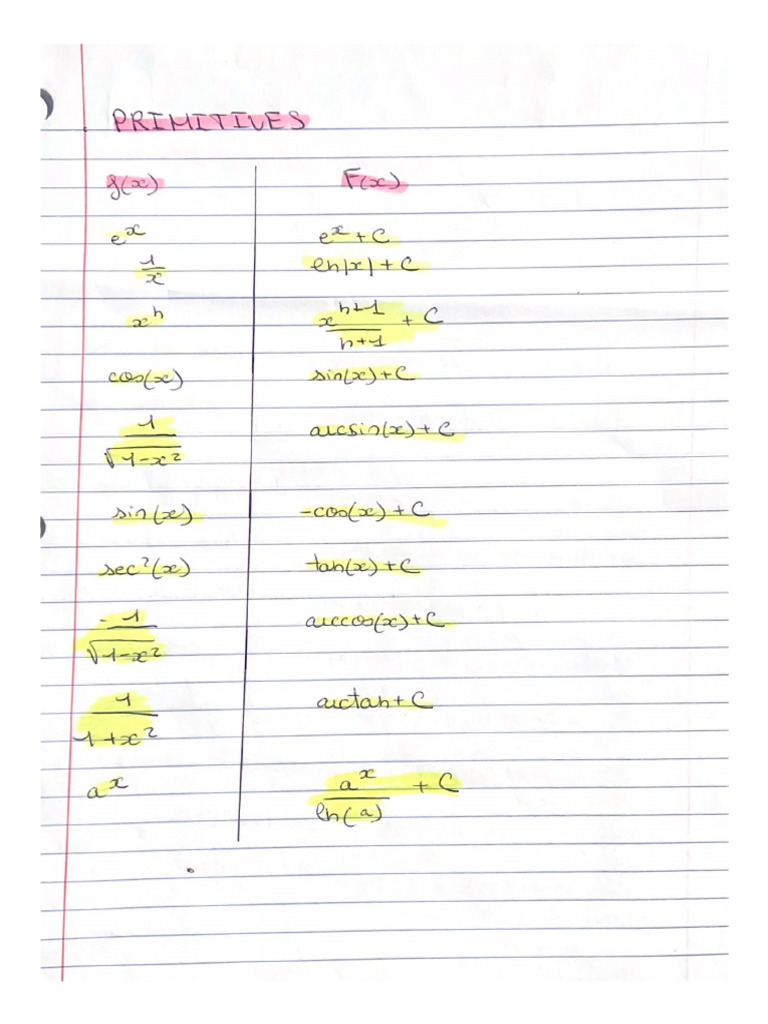 PRIMITIVES
f(x) F(x)
e^x e^x + C
1/x ln|x| + C
x^n x^(n+1)/(n+1) + C
cos(x) sin(x) + C
1/√(1-x²) arcsin(x) + C
sin(x) -cos(x) + C
sec²(x) tan(x) + C
-1/√(1-x²) arccos(x) + C
1/(1+x²) arctan + C
a^x a^x/ln(a) + C